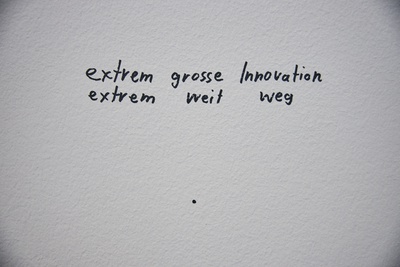 extrem grosse Innovation
extrem weit weg